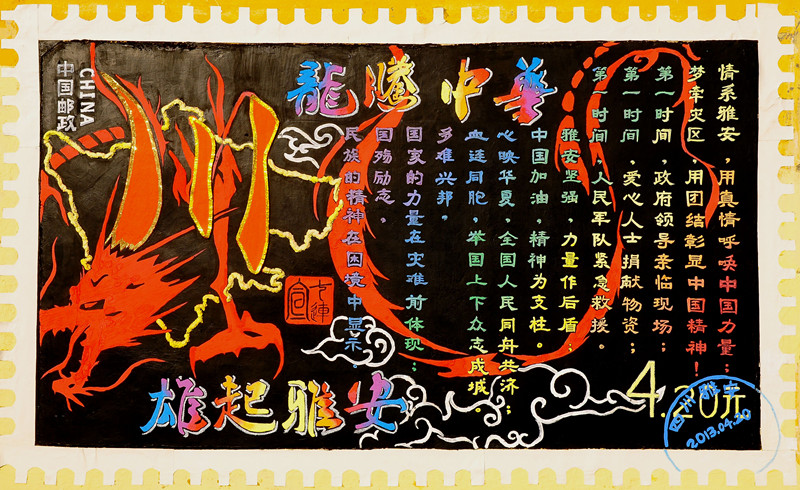 CHINA
中国邮政
龍騰中華
情系雅安，用真情呼唤中国力量；
梦牵灾区，用团结彰显中国精神！
第一时间，政府领导亲临现场；
第一时间，爱心人士捐献物资；
第一时间，人民军队紧急救援。
雅安坚强，力量作后盾；
中国加油，精神为支柱。
心映华夏，全国人民同舟共济；
血连同胞，举国上下众志成城。
多难兴邦，
国家的力量在灾难前体现；
国殇励志，
民族的精神在困境中显示．
川
七连
宣
雄起雅安
4.20元
四川雅安
2013.04.20